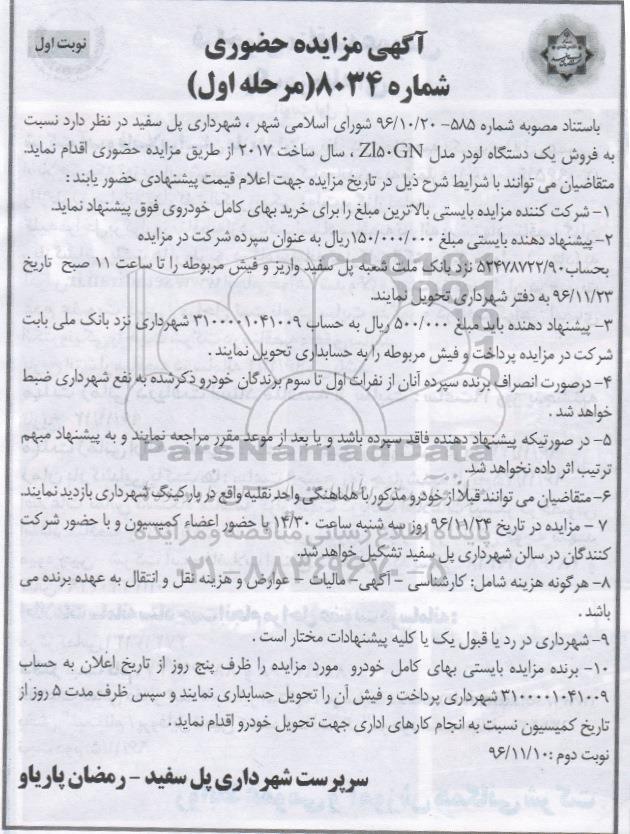 نوبت اول
آگهی مزایده حضوری
شماره ۸۰۳۴(مرحله اول)
باستناد مصوبه شماره ۵۸۵- ۹۶/۱۰/۲۰ شورای اسلامی شهر ، شهرداری پل سفید در نظر دارد نسبت
به فروش یک دستگاه لودر مدل Zl۵۰GN ، سال ساخت ۲۰۱۷ از طریق مزایده حضوری اقدام نماید.
متقاضیان می توانند با شرایط شرح ذیل در تاریخ مزایده جهت اعلام قیمت پیشنهادی حضور یابند :
۱- شرکت کننده مزایده بایستی بالاترین مبلغ را برای خرید بهای کامل خودروی فوق پیشنهاد نماید.
۲- پیشنهاد دهنده بایستی مبلغ ۱۵۰/۰۰۰/۰۰۰ریال به عنوان سپرده شرکت در مزایده
بحساب۵۳۴۷۸۷۲۲/۹۰ نزد بانک ملت شعبه پل سفید واریز و فیش مربوطه را تا ساعت ۱۱ صبح تاریخ
۹۶/۱۱/۲۳ به دفتر شهرداری تحویل نمایند.
۳- پیشنهاد دهنده باید مبلغ ۵۰۰/۰۰۰ ریال به حساب ۳۱۰۰۰۰۱۰۴۱۰۰۹ شهرداری نزد بانک ملی بابت
شرکت در مزایده پرداخت و فیش مربوطه را به حسابداری تحویل نمایند .
۴- درصورت انصراف برنده سپرده آنان از نفرات اول تا سوم برندگان خودرو ذکرشده به نفع شهرداری ضبط
خواهد شد .
۵- در صورتیکه پیشنهاد دهنده فاقد سپرده باشد و یا بعد از موعد مقرر مراجعه نمایند و به پیشنهاد مبهم
ترتیب اثر داده نخواهد شد.
۶- متقاضیان می توانند قبلا از خودرو مذکور با هماهنگی واحد نقلیه واقع در پارکینگ شهرداری بازدید نمایند.
۷ - مزایده در تاریخ ۹۶/۱۱/۲۴ روز سه شنبه ساعت ۱۴/۳۰ با حضور اعضاء کمیسیون و با حضور شرکت
کنندگان در سالن شهرداری پل سفید تشکیل خواهد شد.
۸- هرگونه هزینه شامل: کارشناسی - آگهی- مالیات - عوارض و هزینه نقل و انتقال به عهده برنده می
باشد .
۹- شهرداری در رد یا قبول یک یا کلیه پیشنهادات مختار است .
۱۰- برنده مزایده بایستی بهای کامل خودرو مورد مزایده را ظرف پنج روز از تاریخ اعلان به حساب
۳۱۰۰۰۰۱۰۴۱۰۰۹ شهرداری پرداخت و فیش آن را تحویل حسابداری نمایند و سپس ظرف مدت ۵ روز از
تاریخ کمیسیون نسبت به انجام کارهای اداری جهت تحویل خودرو اقدام نماید .
نوبت دوم :۹۶/۱۱/۱۰
سرپرست شهرداری پل سفید - رمضان پاریاو
ParsNamadData
پایگاه اطلاع رسانی مناقصه و مزایده
۰۲۱-۸۸۳۴۹۶۷۰-۵